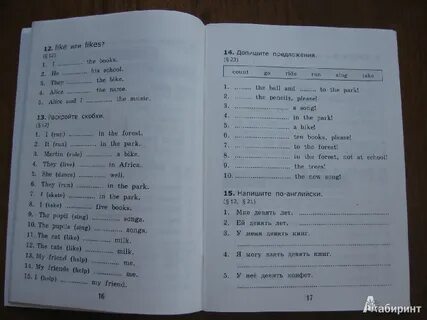 12. like или likes?
(§ 12)
1. I ........ the books.
2. He ........ his school.
3. They ........ the bike.
4. Alice ........ the name.
5. Alice and I ........ the music.
13. Раскройте скобки.
(§ 12)
1. I (run) ........ in the forest.
2. It (run) ........ in the park.
3. Martin (ride) ........ a bike.
4. They (live) ........ in Africa.
5. She (dance) ........ well.
6. They (run) ........ in the park.
7. I (skate) ........ in the park.
8. I (take) ........ five books.
9. The pupil (sing) ........ songs.
10. The pupils (sing) ........ songs.
11. The cat (like) ........ milk.
12. The cats (like) ........ milk.
13. My friend (help) ........ me.
14. My friends (help) ........ me.
15. I (help) ........ my friend.
16
14. Допишите предложения.
(§ 23)
count go ride run sing take
1. ........ the ball and ........ to the park!
2. ........ the pencils, please!
3. ........ songs!
4. ........ in the park!
5. ........ a bike!
6. ........ ten books, please!
7. ........ to the forest!
8. ........ to the forest, not at school!
9. ........ the trees!
10. ........ the new song!
15. Напишите по-английски.
(§ 12, § 21)
1. Мне девять лет.
2. Ей девять лет.
3. У меня девять книг.
4. Я могу взять девять книг.
5. У неё девять конфет.
17
Лабиринт